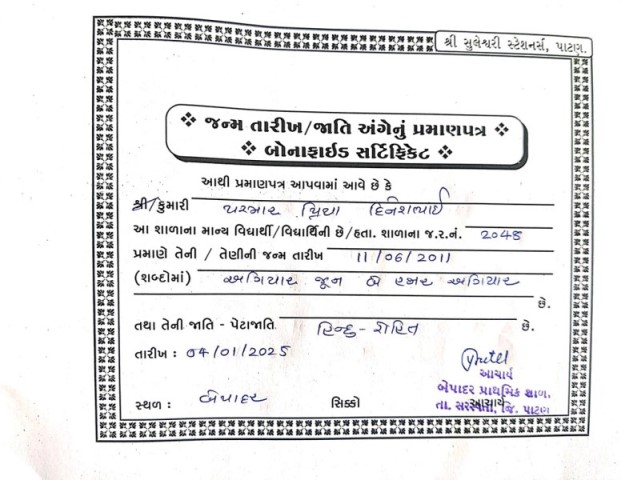 શ્રી સુલેશ્વરી સ્ટેશનર્સ, પાટણ.
❖ જન્મ તારીખ/જાતિ અંગેનું પ્રમાણપત્ર ❖
❖ બોનાફાઈડ સર્ટિફિકેટ ❖
આથી પ્રમાણપત્ર આપવામાં આવે છે કે
શ્રી/કુમારી પરમાર પ્રિયા દિનેશભાઈ
આ શાળાના માન્ય વિદ્યાર્થી/વિદ્યાર્થિની છે/હતા. શાળાના જ.ર.નં. 2045
પ્રમાણે તેની / તેણીની જન્મ તારીખ 11/06/2011
(શબ્દોમાં) અગિયાર જૂન બે હજાર અગિયાર
છે.
તથા તેની જાતિ - પેટાજાતિ હિન્દુ - રોહિત છે.
તારીખ : 04/01/2025
આચાર્ય
બેપાદર પ્રાથમિક શાળા
તા. સરસ્વતી, જિ. પાટણ
સ્થળ : બેપાદર સિક્કો આચાર્ય